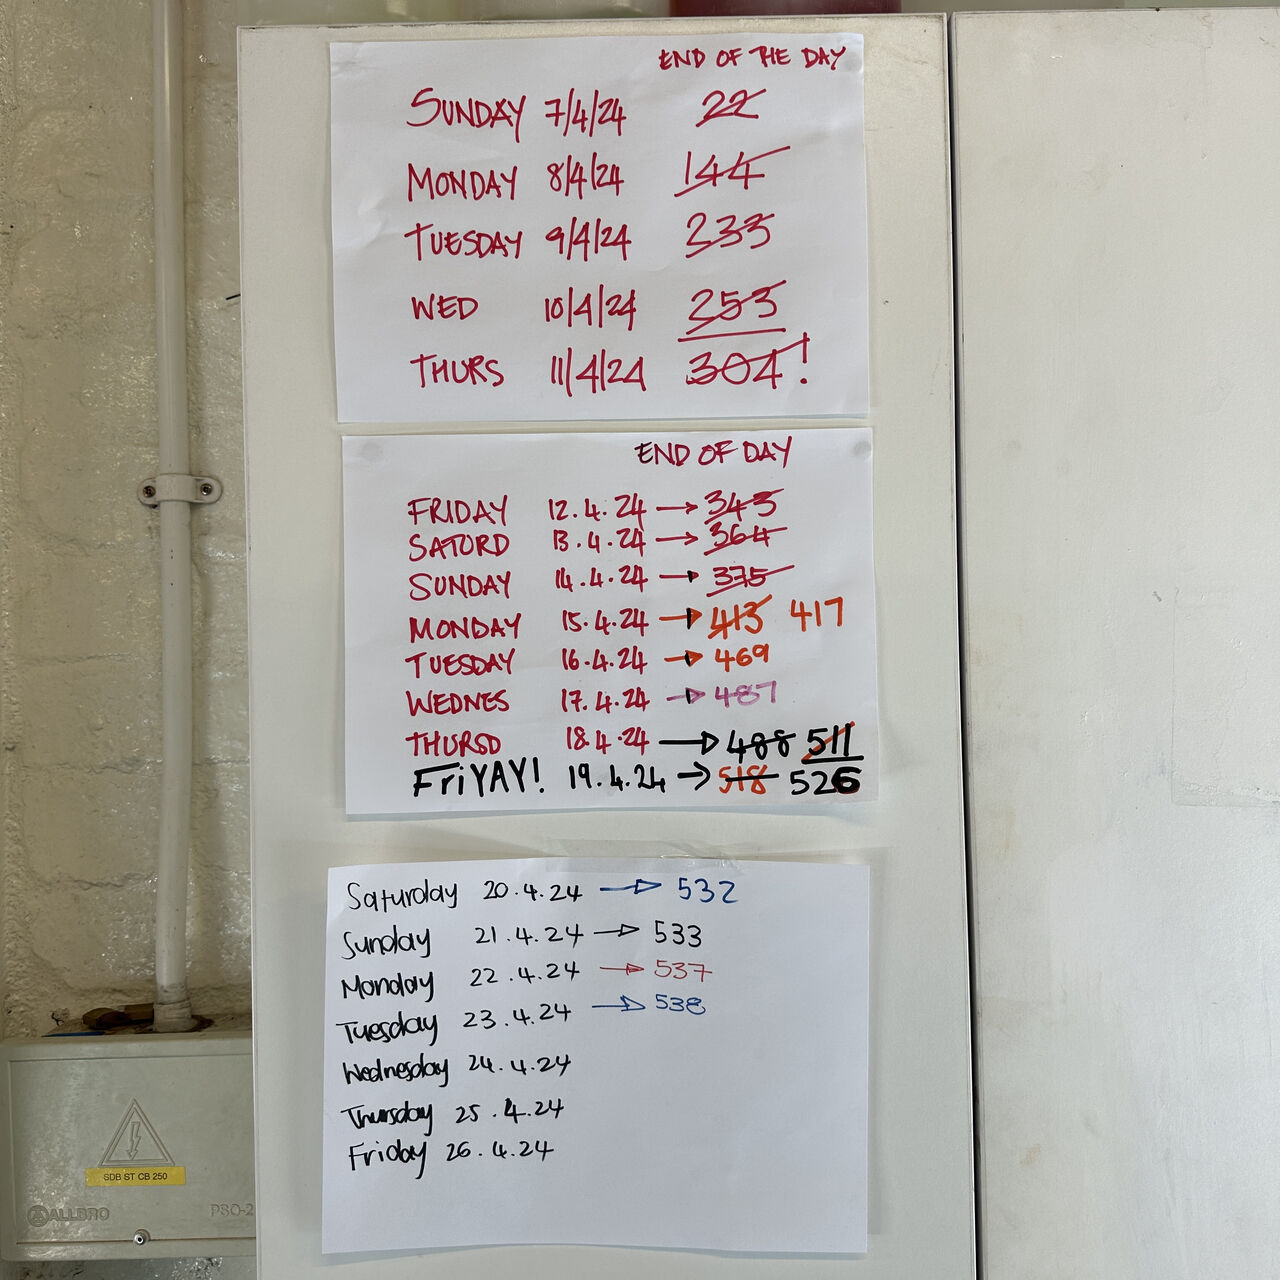 END OF THE DAY
SUNDAY 7/4/24 22
MONDAY 8/4/24 144
TUESDAY 9/4/24 233
WED 10/4/24 253
THURS 11/4/24 304!
END OF DAY
FRIDAY 12.4.24 → 343
SATURD 13.4.24 → 364
SUNDAY 14.4.24 → 375
MONDAY 15.4.24 → 413 417
TUESDAY 16.4.24 → 469
WEDNES 17.4.24 → 487
THURSD 18.4.24 → 488 511
FRiYAY! 19.4.24 → 518 526
Saturday 20.4.24 → 532
Sunday 21.4.24 → 533
Monday 22.4.24 → 537
Tuesday 23.4.24 → 538
Wednesday 24.4.24
Thursday 25.4.24
Friday 26.4.24
SDB ST CB 250
ALLBRO PSO-2